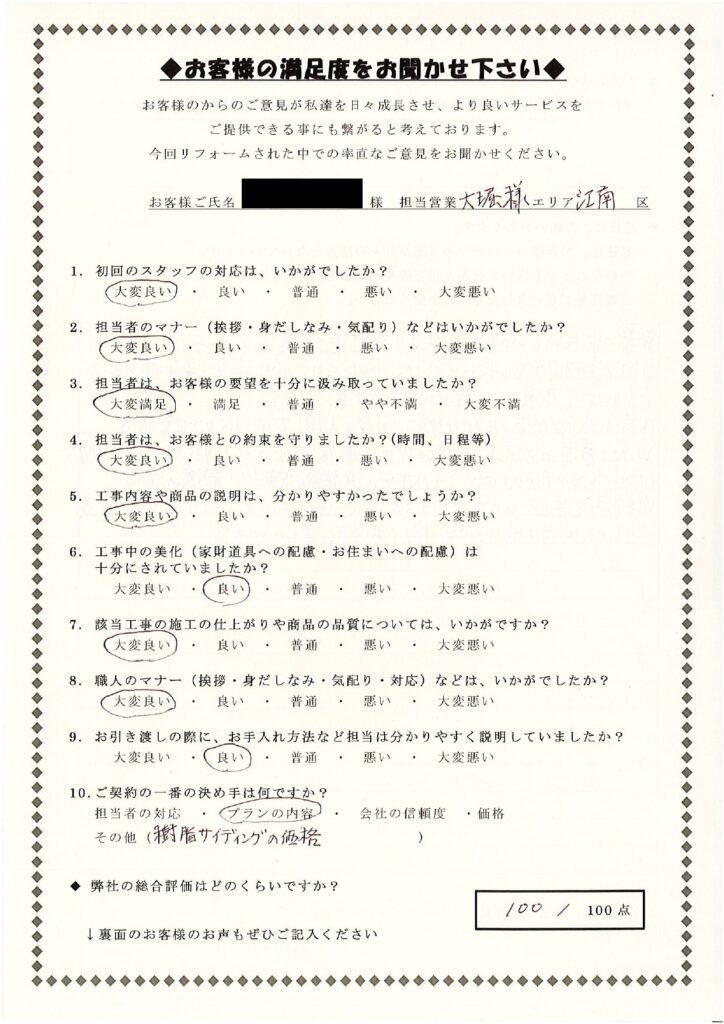 ◆お客様の満足度をお聞かせ下さい◆
お客様のからのご意見が私達を日々成長させ、より良いサービスを
ご提供できる事にも繋がると考えております。
今回リフォームされた中での率直なご意見をお聞かせください。
お客様ご氏名 様 担当営業 大堀様 エリア 江南 区
1. 初回のスタッフの対応は、いかがでしたか？
大変良い ・ 良い ・ 普通 ・ 悪い ・ 大変悪い
2. 担当者のマナー（挨拶・身だしなみ・気配り）などはいかがでしたか？
大変良い ・ 良い ・ 普通 ・ 悪い ・ 大変悪い
3. 担当者は、お客様の要望を十分に汲み取っていましたか？
大変満足 ・ 満足 ・ 普通 ・ やや不満 ・ 大変不満
4. 担当者は、お客様との約束を守りましたか？(時間、日程等)
大変良い ・ 良い ・ 普通 ・ 悪い ・ 大変悪い
5. 工事内容や商品の説明は、分かりやすかったでしょうか？
大変良い ・ 良い ・ 普通 ・ 悪い ・ 大変悪い
6. 工事中の美化（家財道具への配慮・お住まいへの配慮）は
十分にされていましたか？
大変良い ・ 良い ・ 普通 ・ 悪い ・ 大変悪い
7. 該当工事の施工の仕上がりや商品の品質については、いかがですか？
大変良い ・ 良い ・ 普通 ・ 悪い ・ 大変悪い
8. 職人のマナー（挨拶・身だしなみ・気配り・対応）などは、いかがでしたか？
大変良い ・ 良い ・ 普通 ・ 悪い ・ 大変悪い
9. お引き渡しの際に、お手入れ方法など担当は分かりやすく説明していましたか？
大変良い ・ 良い ・ 普通 ・ 悪い ・ 大変悪い
10. ご契約の一番の決め手は何ですか？
担当者の対応 ・ プランの内容 ・ 会社の信頼度 ・価格
その他（樹脂サイディングの価格 ）
◆ 弊社の総合評価はどのくらいですか？
100 / 100点
↓裏面のお客様のお声もぜひご記入ください